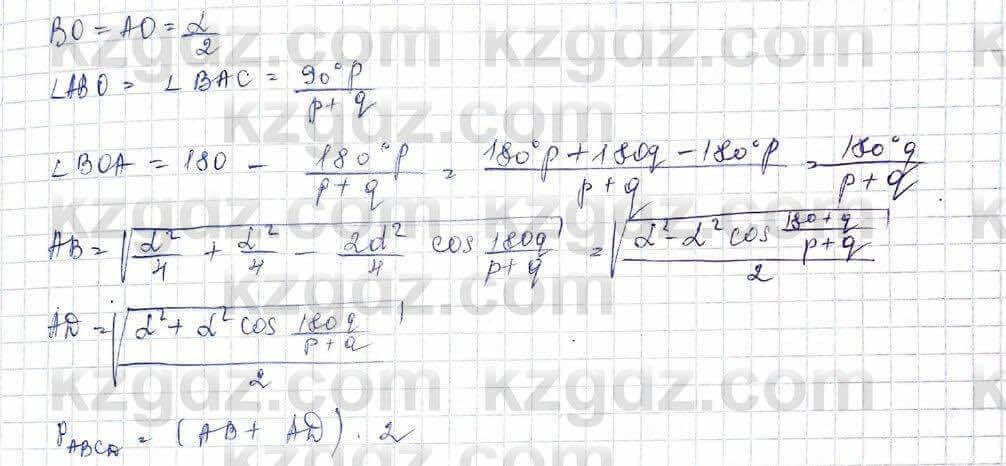 BO = AO = d/2
∠ABO = ∠BAC = 90°p/(p+q)
∠BOA = 180 - 180°p/(p+q) = (180°p+180q-180°p)/(p+q) = 180°q/(p+q).
AB = √(d²/4 + d²/4 - 2d²/4 cos 180q/(p+q)) = √((d²-d² cos (180+q)/(p+q))/2)
AD = √((d²+d² cos 180q/(p+q))/2)
P_ABCD = (AB + AD) · 2
kzgdz.com kzgdz.com
kzgdz.com
kzgdz.com kzgdz.com
kzgdz.com
kzgdz.com kzgdz.com
kzgdz.com